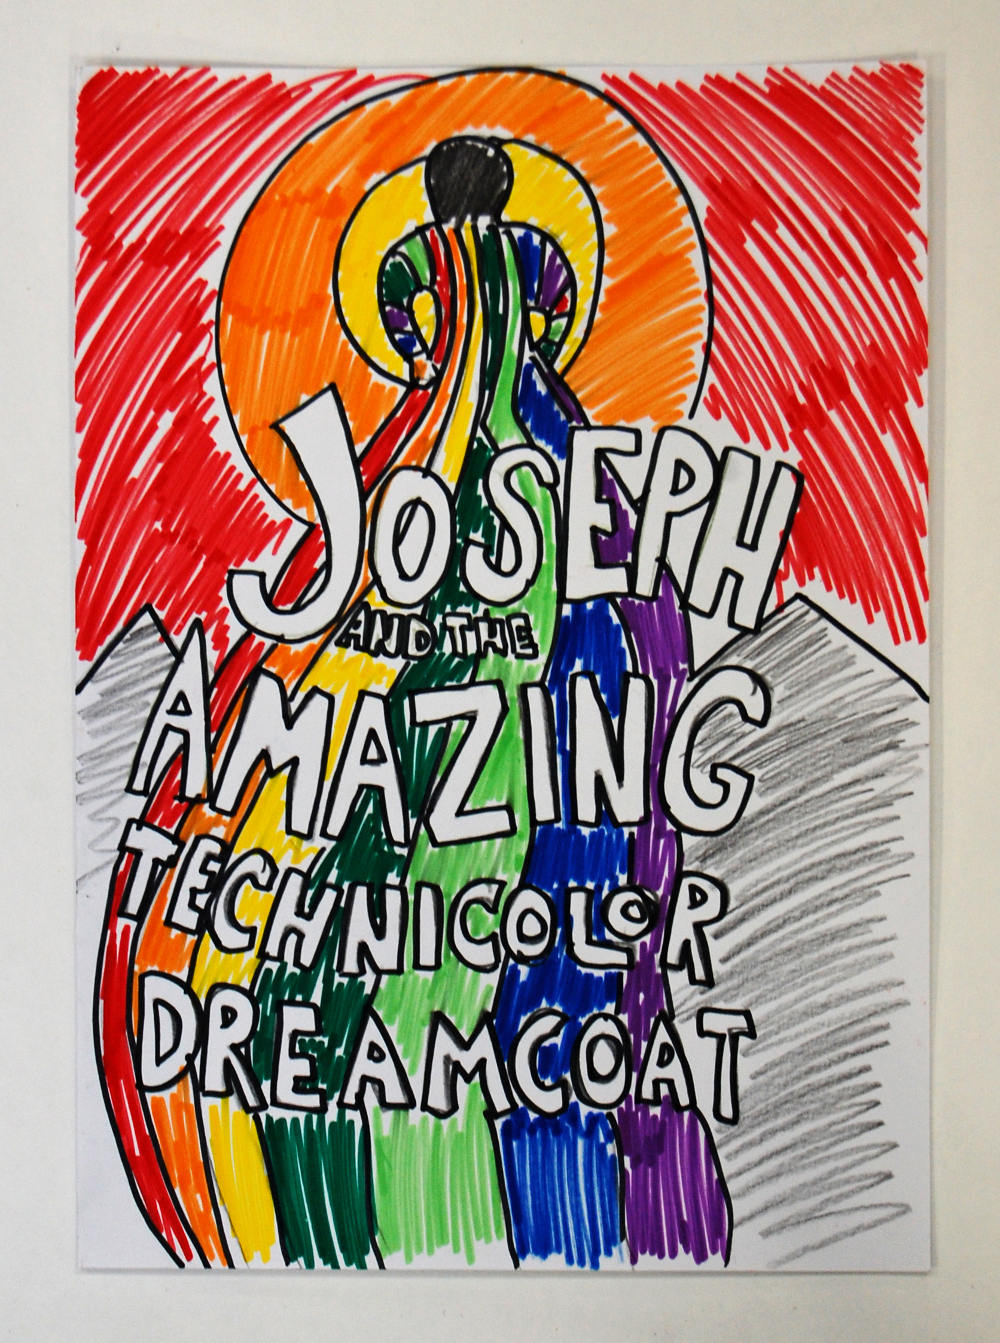 JOSEPH
AND THE
AMAZING
TECHNICOLOR
DREAMCOAT